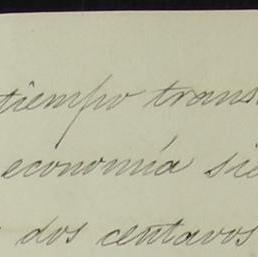 tiempo trans
economía sie
dos centavos